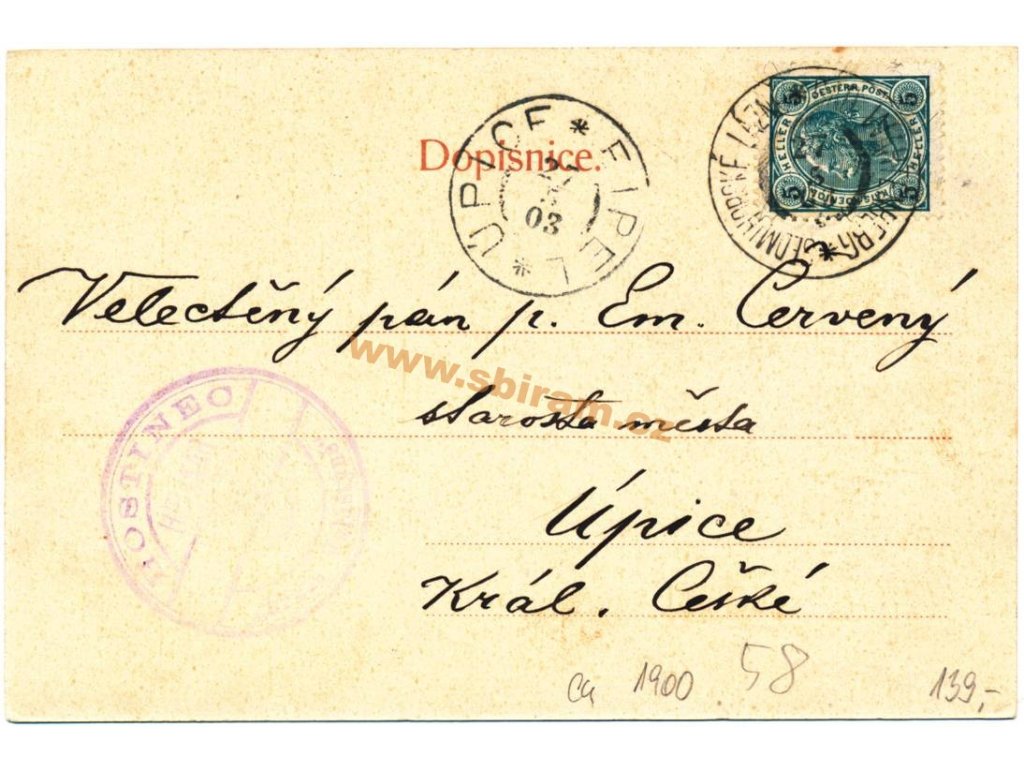 Dopisnice.
ÚPICE * EIPEL *
03
OESTERR. POST
5 HELLER 5
5 HELLER 5
SEDMIHORSKÉ LÁZNĚ *
Velectěný pán p. Em. Červený
www.sbiram.cz
starosta města
HOSTINEC
Úpice
Král. České
ca 1900 58 139,-